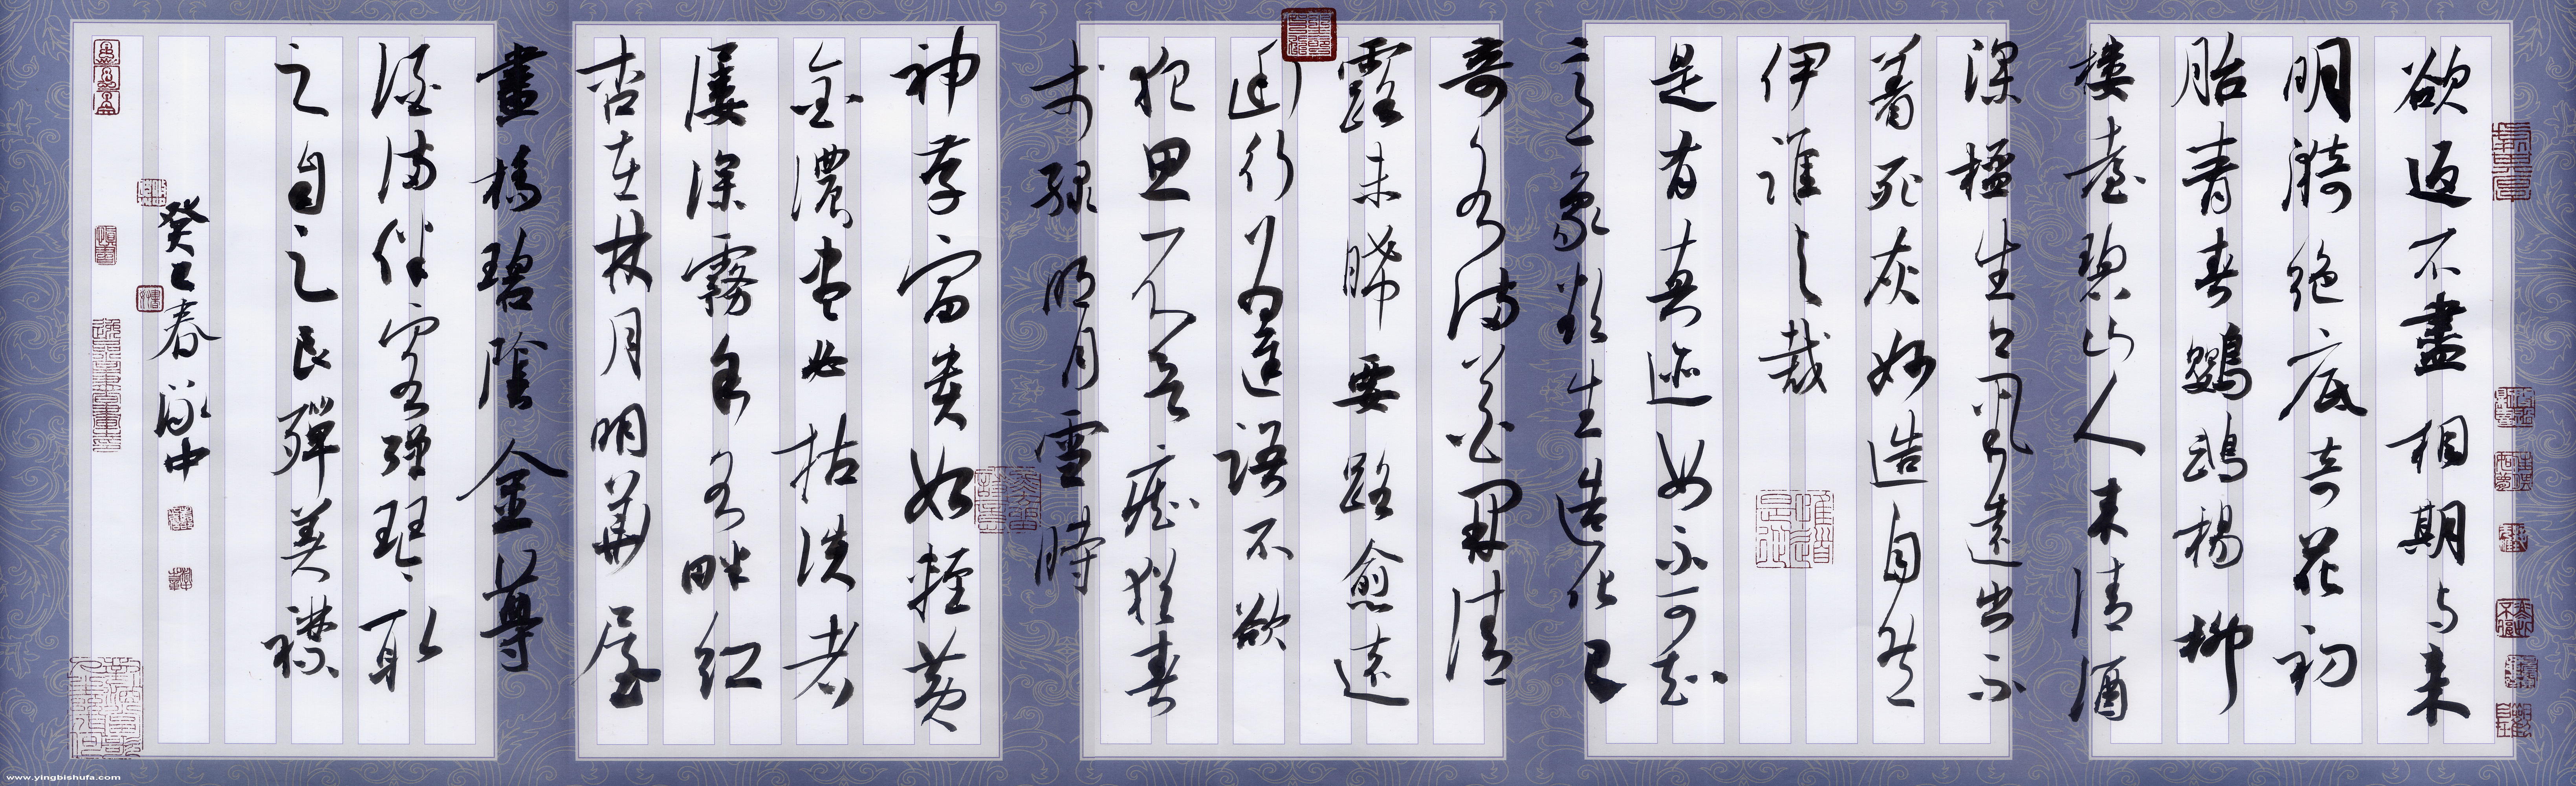 欲返不盡相期与来
明漪絕底奇花初
胎青春鸚鵡楊柳
樓臺碧山人来清酒
深楹生气風遠出不
著死灰妙造自然
伊誰之裁
是有真迹如不可知
意象欲生造化已
奇水流花開清
露未晞要路愈遠
幽行為遲語不欲
犯思不欲癡猶春
於綠明月雪時
神存富貴始輕黄
金濃盡必枯淡者
屢深霧餘水畔紅
杏在林月明華屋
畫橋碧陰金尊
酒滿伴客彈琴取
之自足良殫美襟
癸巳春 中
www.yingbishufa.com